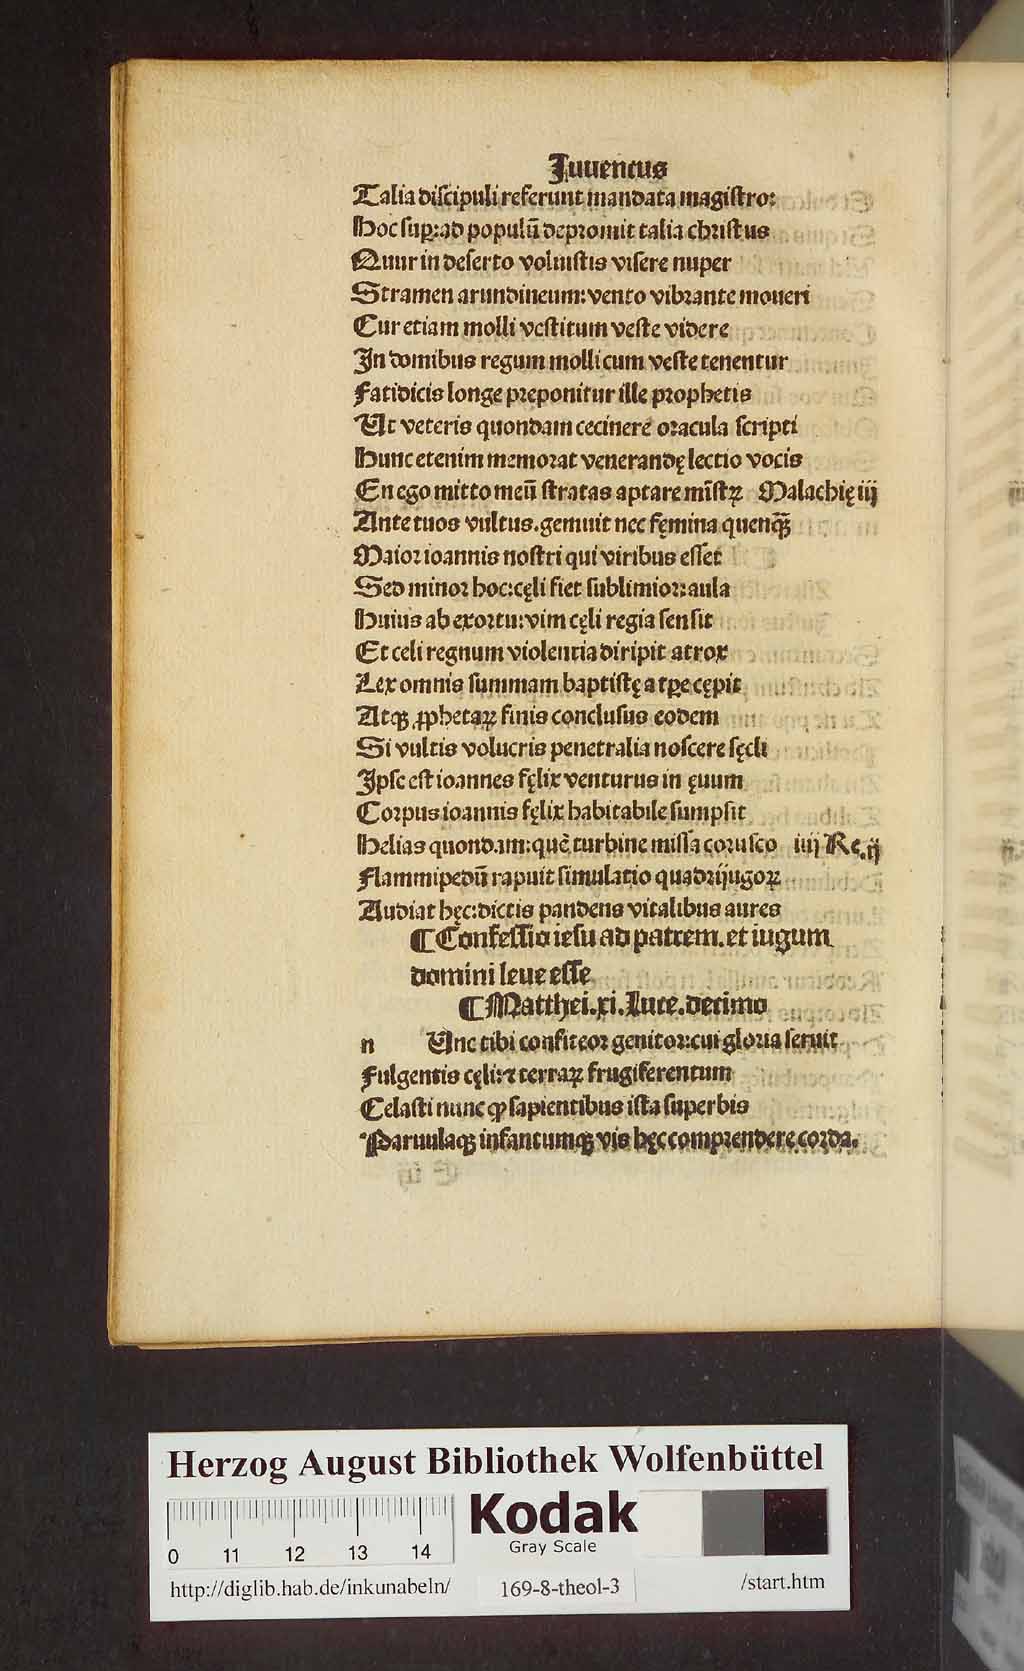 Juuencus
Talia discipuli referunt mandata magistro:
Hoc suꝑ:ad populū depromit talia christus
Quur in deserto voluistis visere nuper
Stramen arundineum:vento vibrante moueri
Cur etiam molli vestitum veste videre
In domibus regum molli cum veste tenentur
Fatidicis longe preponitur ille prophetis
Ut veteris quondam cecinere oracula scripti
Hunc etenim memorat venerandę lectio vocis
En ego mitto meū stratas aptare mīstꝝ Malachię iij
Ante tuos vultus.genuit nec fęmina quenqꝫ̄
Maior ioannis nostri qui viribus esset
Sed minor hoc:cęli fiet sublimior:aula
Huius ab exortu:vim cęli regia sensit
Et celi regnum violentia diripit atrox
Lex omnis summam baptistę a tꝑe cępit
Atqꝫ ꝓphetaꝝ finis conclusus eodem
Si vultis volucris penetralia noscere sęcli
Ipse est ioannes fęlix venturus in ęuum
Corpus ioannis fęlix habitabile sumpsit
Helias quondam:quē turbine missa corusco iiij Re.ij
Flammipedū rapuit simulatio quadrijugoꝝ
Audiat hęc:dictis pandens vitalibus aures
¶Confessio iesu ad patrem.et iugum
domini leue esse
¶Matthei.xi.Luce.decimo
n Unc tibi confiteor genitor:cui gloria seruit
Fulgentis cęli:⁊ terraꝝ frugiferentum
Celasti nunc ꝙ sapientibus ista superbis
Paruulaqꝫ infantumqꝫ vis hęc comprendere corda.
Herzog August Bibliothek Wolfenbüttel
Kodak
Gray Scale
0 11 12 13 14
http://diglib.hab.de/inkunabeln/ 169-8-theol-3 /start.htm